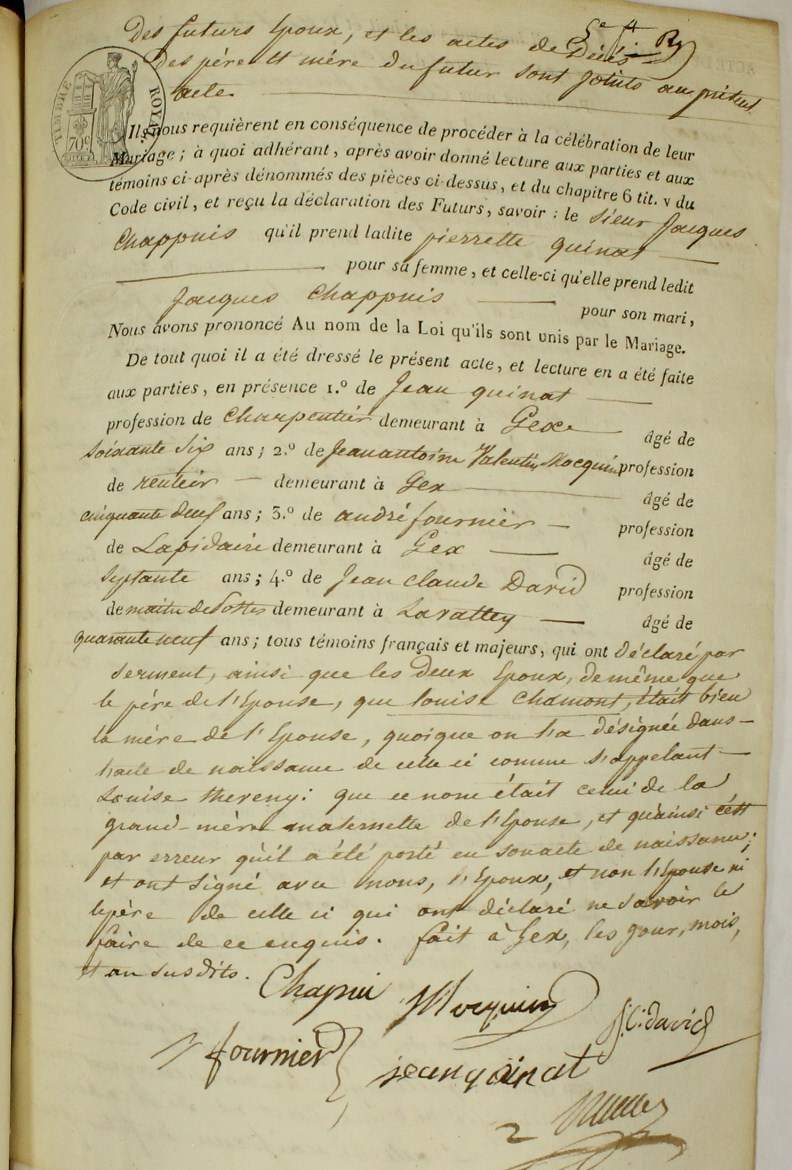 5e f
des futurs Epoux, et les actes de Décès
des père et mère du futur sont joints au présent
acte.
TIMBRE ROYAL
70c
Ils nous requièrent en conséquence de procéder à la célébration de leur
Mariage; à quoi adhérant, après avoir donné lecture aux parties et aux
témoins ci-après dénommés des pièces ci-dessus, et du chapitre 6 tit. v du
Code civil, et reçu la déclaration des Futurs, savoir: le sieur Jacques
Chappuis qu'il prend ladite pierrette quinat
pour sa femme, et celle-ci qu'elle prend ledit
Jacques Chappuis pour son mari,
Nous avons prononcé Au nom de la Loi qu'ils sont unis par le Mariage.
De tout quoi il a été dressé le présent acte, et lecture en a été faite
aux parties, en présence 1.º de Jean quinat
profession de Charpentier demeurant à Gex âgé de
soixante six ans; 2.º de Jean antoine Valentin Mocquin profession
de rentier demeurant à Gex âgé de
cinquante deuf ans; 3.º de andré fournier profession
de Lapidaire demeurant à Gex âgé de
septante ans; 4.º de Jean Claude David profession
de maitre de Postes demeurant à Lavattey âgé de
quarante neuf ans; tous témoins français et majeurs, qui ont déclaré par
serment, ainsi que les deux Epoux, de même que
le père de l'Epouse, que louise Chamont, était bien
la mère de l'Epouse, quoique on l'a désignée dans
l'acte de naissance de celle ci comme s'appelant
Louise thereny: que ce nom était celui de la
grand-mère maternelle de l'Epouse, et qu'ainsi c'est
par erreur qu'il a été porté en son acte de naissance;
et ont signé avec nous, l'Epoux, et non l'Epouse ni
le père de celle ci qui ont déclaré ne savoir le
faire de ce enquis. fait à Gex, les jour, mois,
et an susdits.
Chapui Mocquin
J. C. david
fournier jean quinat